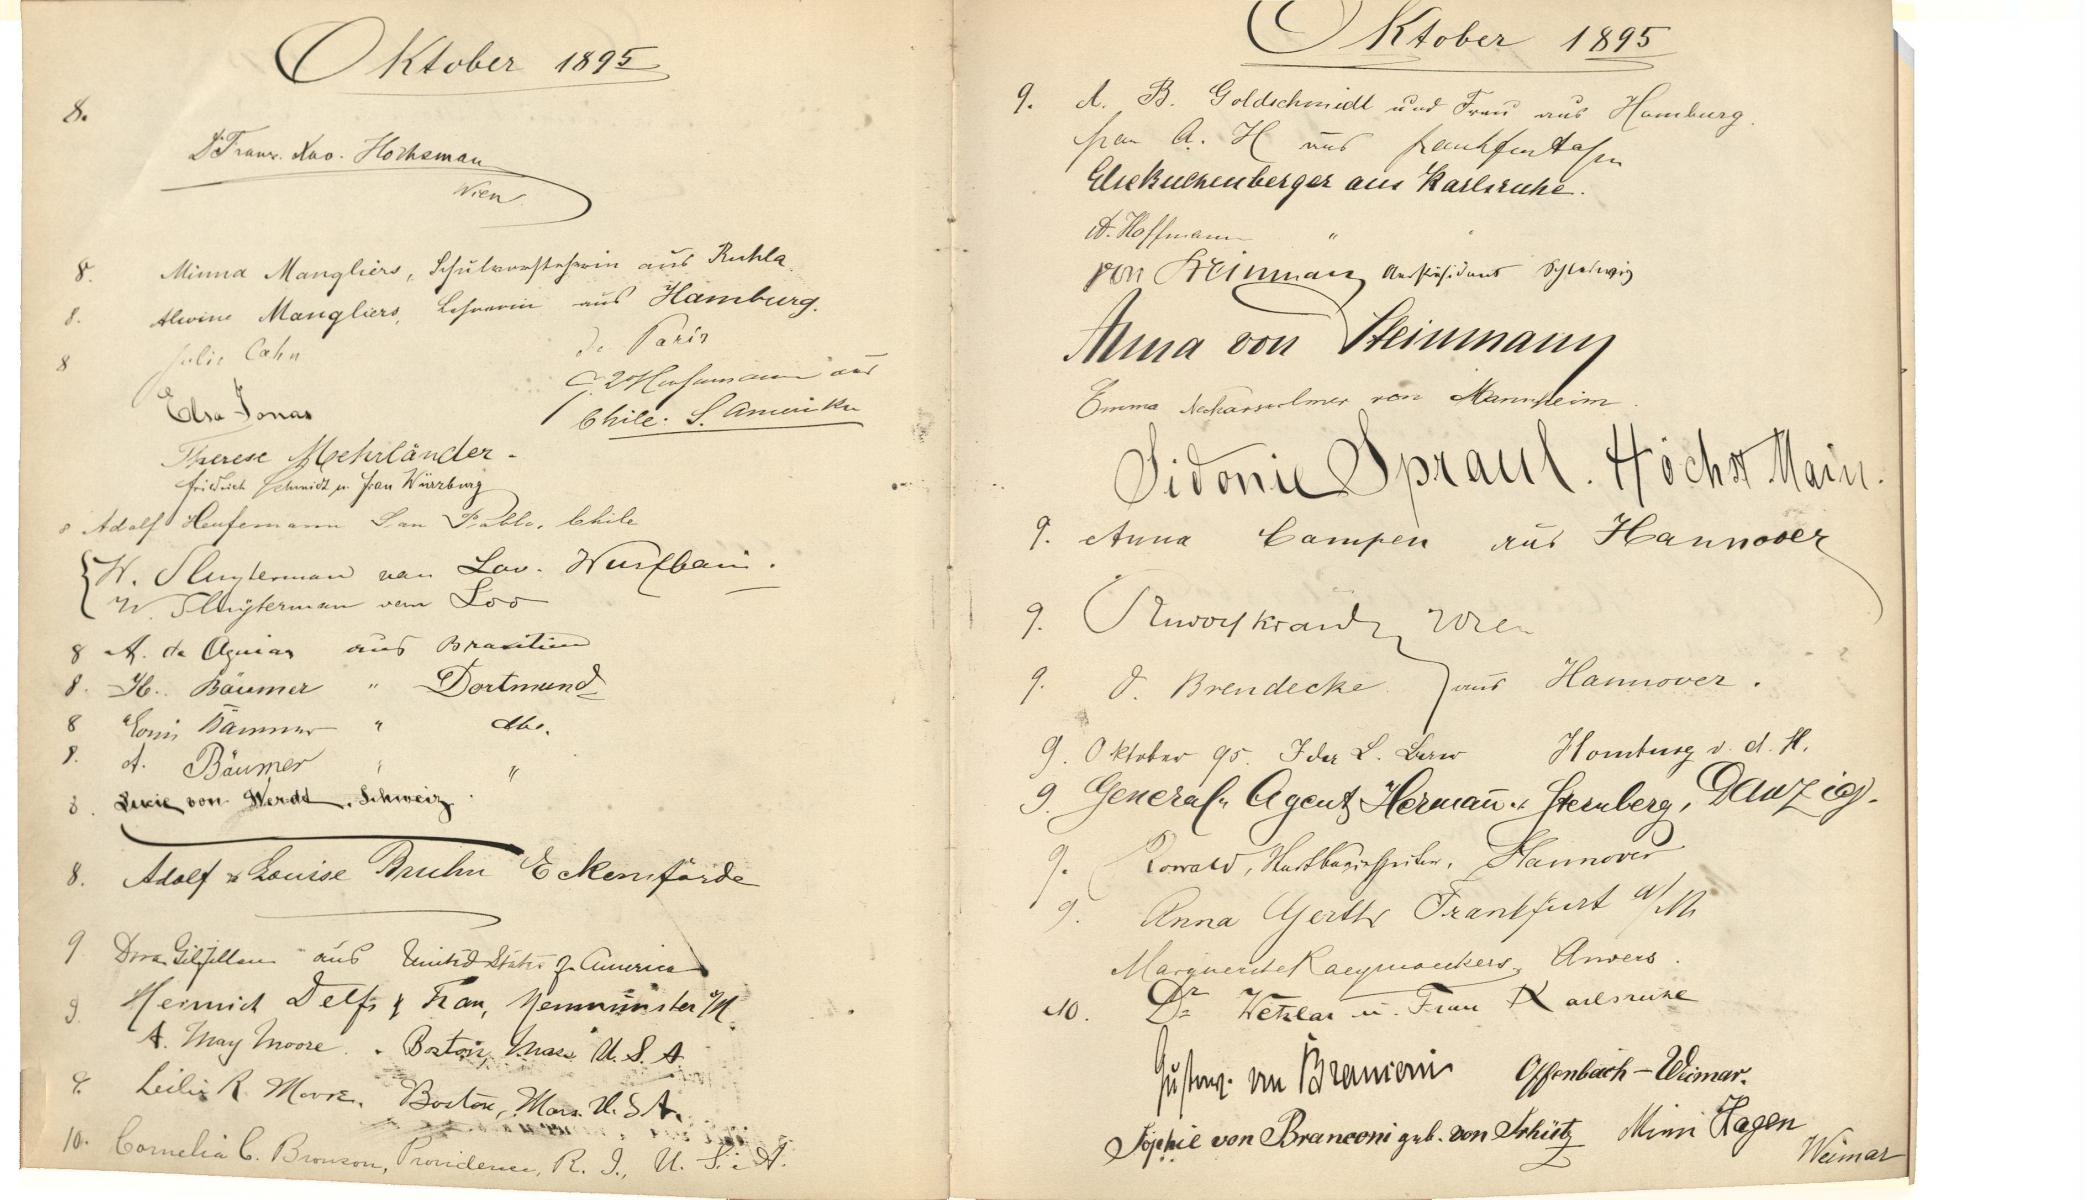 Oktober 1895
8.
Dr Franz Xav. Hochsman
Wien
8. Minna Mangliers, Schulvorsteherin aus Ruhla.
8. Alwine Mangliers, Lehrerin aus Hamburg.
8 Julie Cahn de Paris
Elsa Jonas
Heufemann aus
Chile. S. Amerika
Therese Mehrländer -
Friedrich Schmidt u. Frau Würzburg
8 Adolf Heufemann San Pablo, Chile
W. Sluyterman van Loo. Wurfbain.
W. Sluyterman van Loo
8 A. de Aguiar aus Brasilien
8. H. Bäumer " Dortmund
8 Bäumer " dto.
8. A. Bäumer " "
8. Lucie von Werdt. Schweiz.
8. Adolf & Louise Bruhn Eckernförde
9 Dora Gilfillan aus United States of America
9 Heinrich Delfs & Frau, Neumünster
A. May Moore. Boston, Mass U. S. A
9. Leslie R. Moore. Boston, Mass. U. S. A.
10. Cornelia C. Bronson, Providence, R. I., U. S. A.
Oktober 1895
9. A. B. Goldschmidt und Frau aus Hamburg.
Frau A. H aus Frankfurt a/m
Else Kuckenberger aus Karlsruhe.
A. Hoffmann " "
von Steinmann Schleswig
Anna von Steinmann
Emma Neckarsulmer von Mannheim.
Sidonie Spraul. Höchst Main.
9. Anna Campen aus Hannover
9. Wien
9. d. Brendecke aus Hannover.
9. Oktober 95. Ida L. Homburg v. d. H.
9. General-Agent Hermann Sternberg, Danzig.
9. Hannover
9. Anna Gerth Frankfurt a/M
Marguerite Raeymaekers, Anvers.
10. Dr Wetzlar u. Frau Karlsruhe
Gustav von Branconi Offenbach - Weimar.
Sophie von Branconi geb. von Schütz Mimi Hagen
Weimar